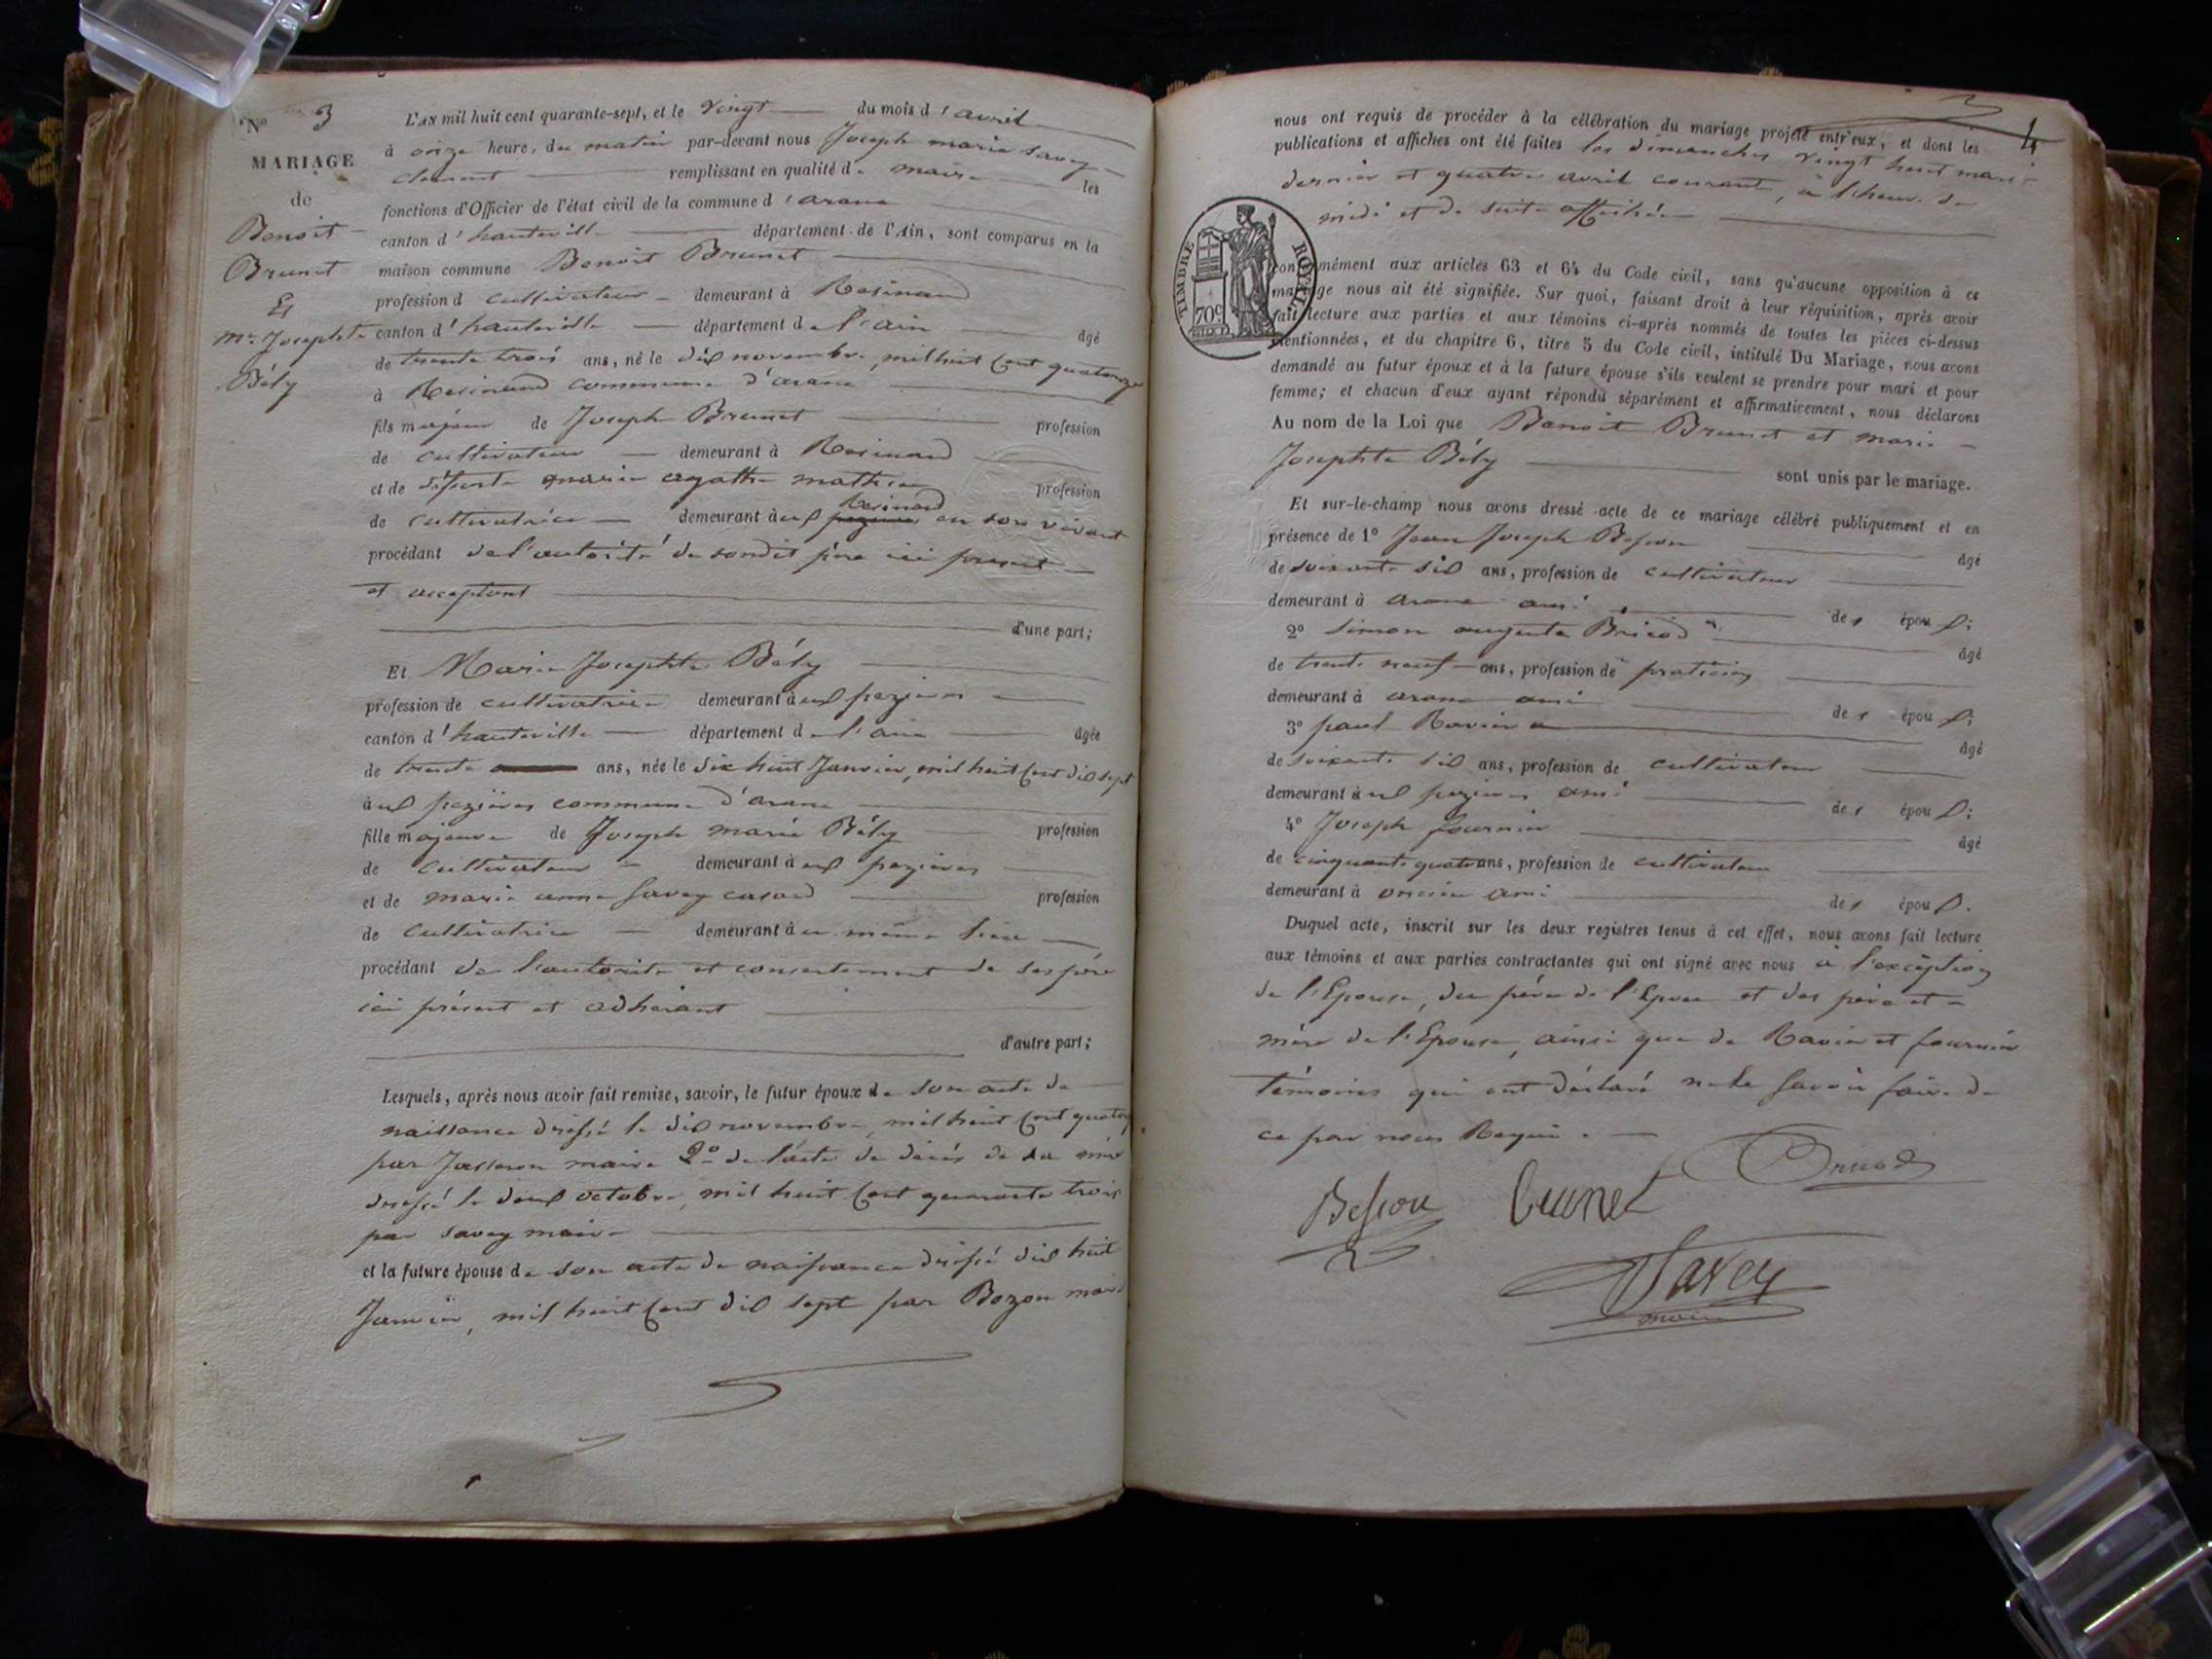 N° 3
MARIAGE
de
Benoit
Brunet
Et
Me Josephte
Bély
L'AN mil huit cent quarante-sept, et le vingt du mois d'avril
à onze heure, du matin par-devant nous Joseph marie Savey
clement remplissant en qualité de maire les
fonctions d'Officier de l'état civil de la commune d'arane
canton d'hauteville département de l'Ain, sont comparus en la
maison commune Benoit Brunet
profession d cultivateur demeurant à Resinand
canton d'hauteville département de l'ain âgé
de trente trois ans, né le dix novembre, mil huit cent quatorze
à Resinand commune d'arane
fils majeur de Joseph Brunet profession
de cultivateur demeurant à Resinand
et de défunte marie agathe mathieu profession
de cultivatrice demeurant à Resinand en son vivant
procédant de l'autorité de sondit père ici present
et acceptant
d'une part;
Et Marie Josephte Bély
profession de cultivatrice demeurant à ux pezieres
canton d'hauteville département de l'ain âgée
de trente ans, née le dix huit Janvier, mil huit cent dix sept
à ux pezières commune d'arane
fille majeure de Joseph marie Bély profession
de cultivateur demeurant à ux pezières
et de marie anne Savey casard profession
de cultivatrice demeurant à u même lieu
procédant de l'autorite et consentement de ses père
ici présent et adhérant
d'autre part;
Lesquels, après nous avoir fait remise, savoir, le futur époux de son acte de
naissance dressé le dix novembre, mil huit cent quatorze
par Jasseron maire 2° de l'acte de décès de sa mère
dressé le deux octobre, mil huit cent quarante trois
par savey maire
et la future épouse de son acte de naissance dressé dix huit
Janvier, mil huit cent dix sept par Bozon maire
4
nous ont requis de procéder à la célébration du mariage projeté entr'eux, et dont les
publications et affiches ont été faites les dimanches vingt huit mars
dernier et quatre avril courant, à l'heure de
midi et de suite affichée
TIMBRE ROYAL
70c
conformément aux articles 63 et 64 du Code civil, sans qu'aucune opposition à ce
mariage nous ait été signifiée. Sur quoi, faisant droit à leur réquisition, après avoir
fait lecture aux parties et aux témoins ci-après nommés de toutes les pièces ci-dessus
mentionnées, et du chapitre 6, titre 5 du Code civil, intitulé Du Mariage, nous avons
demandé au futur époux et à la future épouse s'ils veulent se prendre pour mari et pour
femme; et chacun d'eux ayant répondu séparément et affirmativement, nous déclarons
Au nom de la Loi que Benoit Brunet et marie
Josephte Bély sont unis par le mariage.
Et sur-le-champ nous avons dressé acte de ce mariage célébré publiquement et en
présence de 1° Jean Joseph Besson âgé
de soixante six ans, profession de cultivateur
demeurant à arane ami des épou x;
2° Simon auguste Bricod âgé
de trente neuf ans, profession de praticien
demeurant à arane ami des épou x;
3° paul Ravier âgé
de soixante six ans, profession de cultivateur
demeurant à ux pezieres ami des épou x;
4° Joseph fournier âgé
de cinquante quatre ans, profession de cultivateur
demeurant à oncieu ami des épou x.
Duquel acte, inscrit sur les deux registres tenus à cet effet, nous avons fait lecture
aux témoins et aux parties contractantes qui ont signé avec nous à l'exception
de l'Epouse, du père de l'Epoux et des père et
mère de l'Epouse, ainsi que de Ravier et fournier
témoins qui ont déclaré ne le savoir faire de
ce par nous Requis.
Besson Brunet
Savey
maire